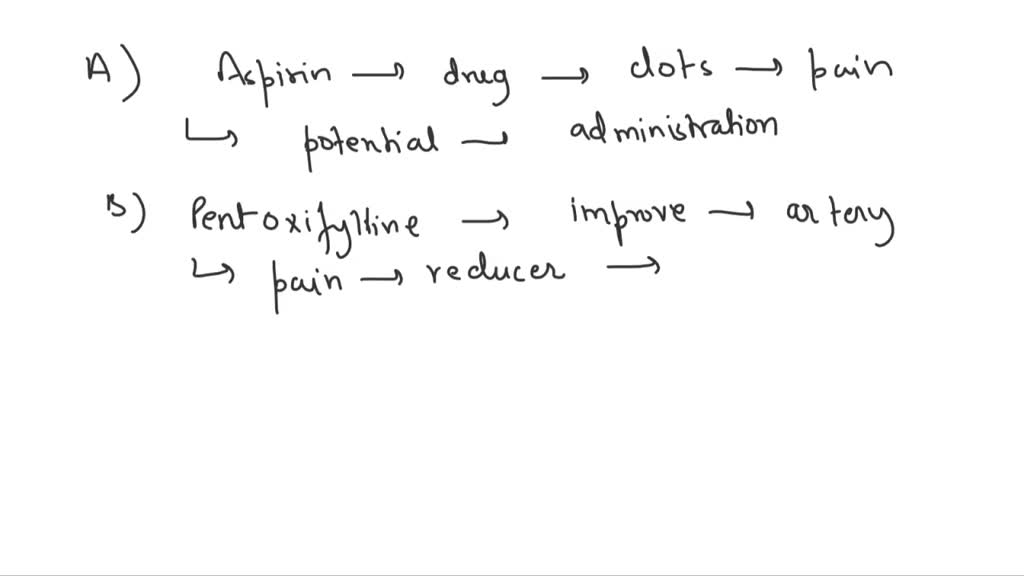 A) Aspirin → drug → clots → pain
↳ potential → administration
B) Pentoxifylline → improve → artery
↳ pain → reducer →